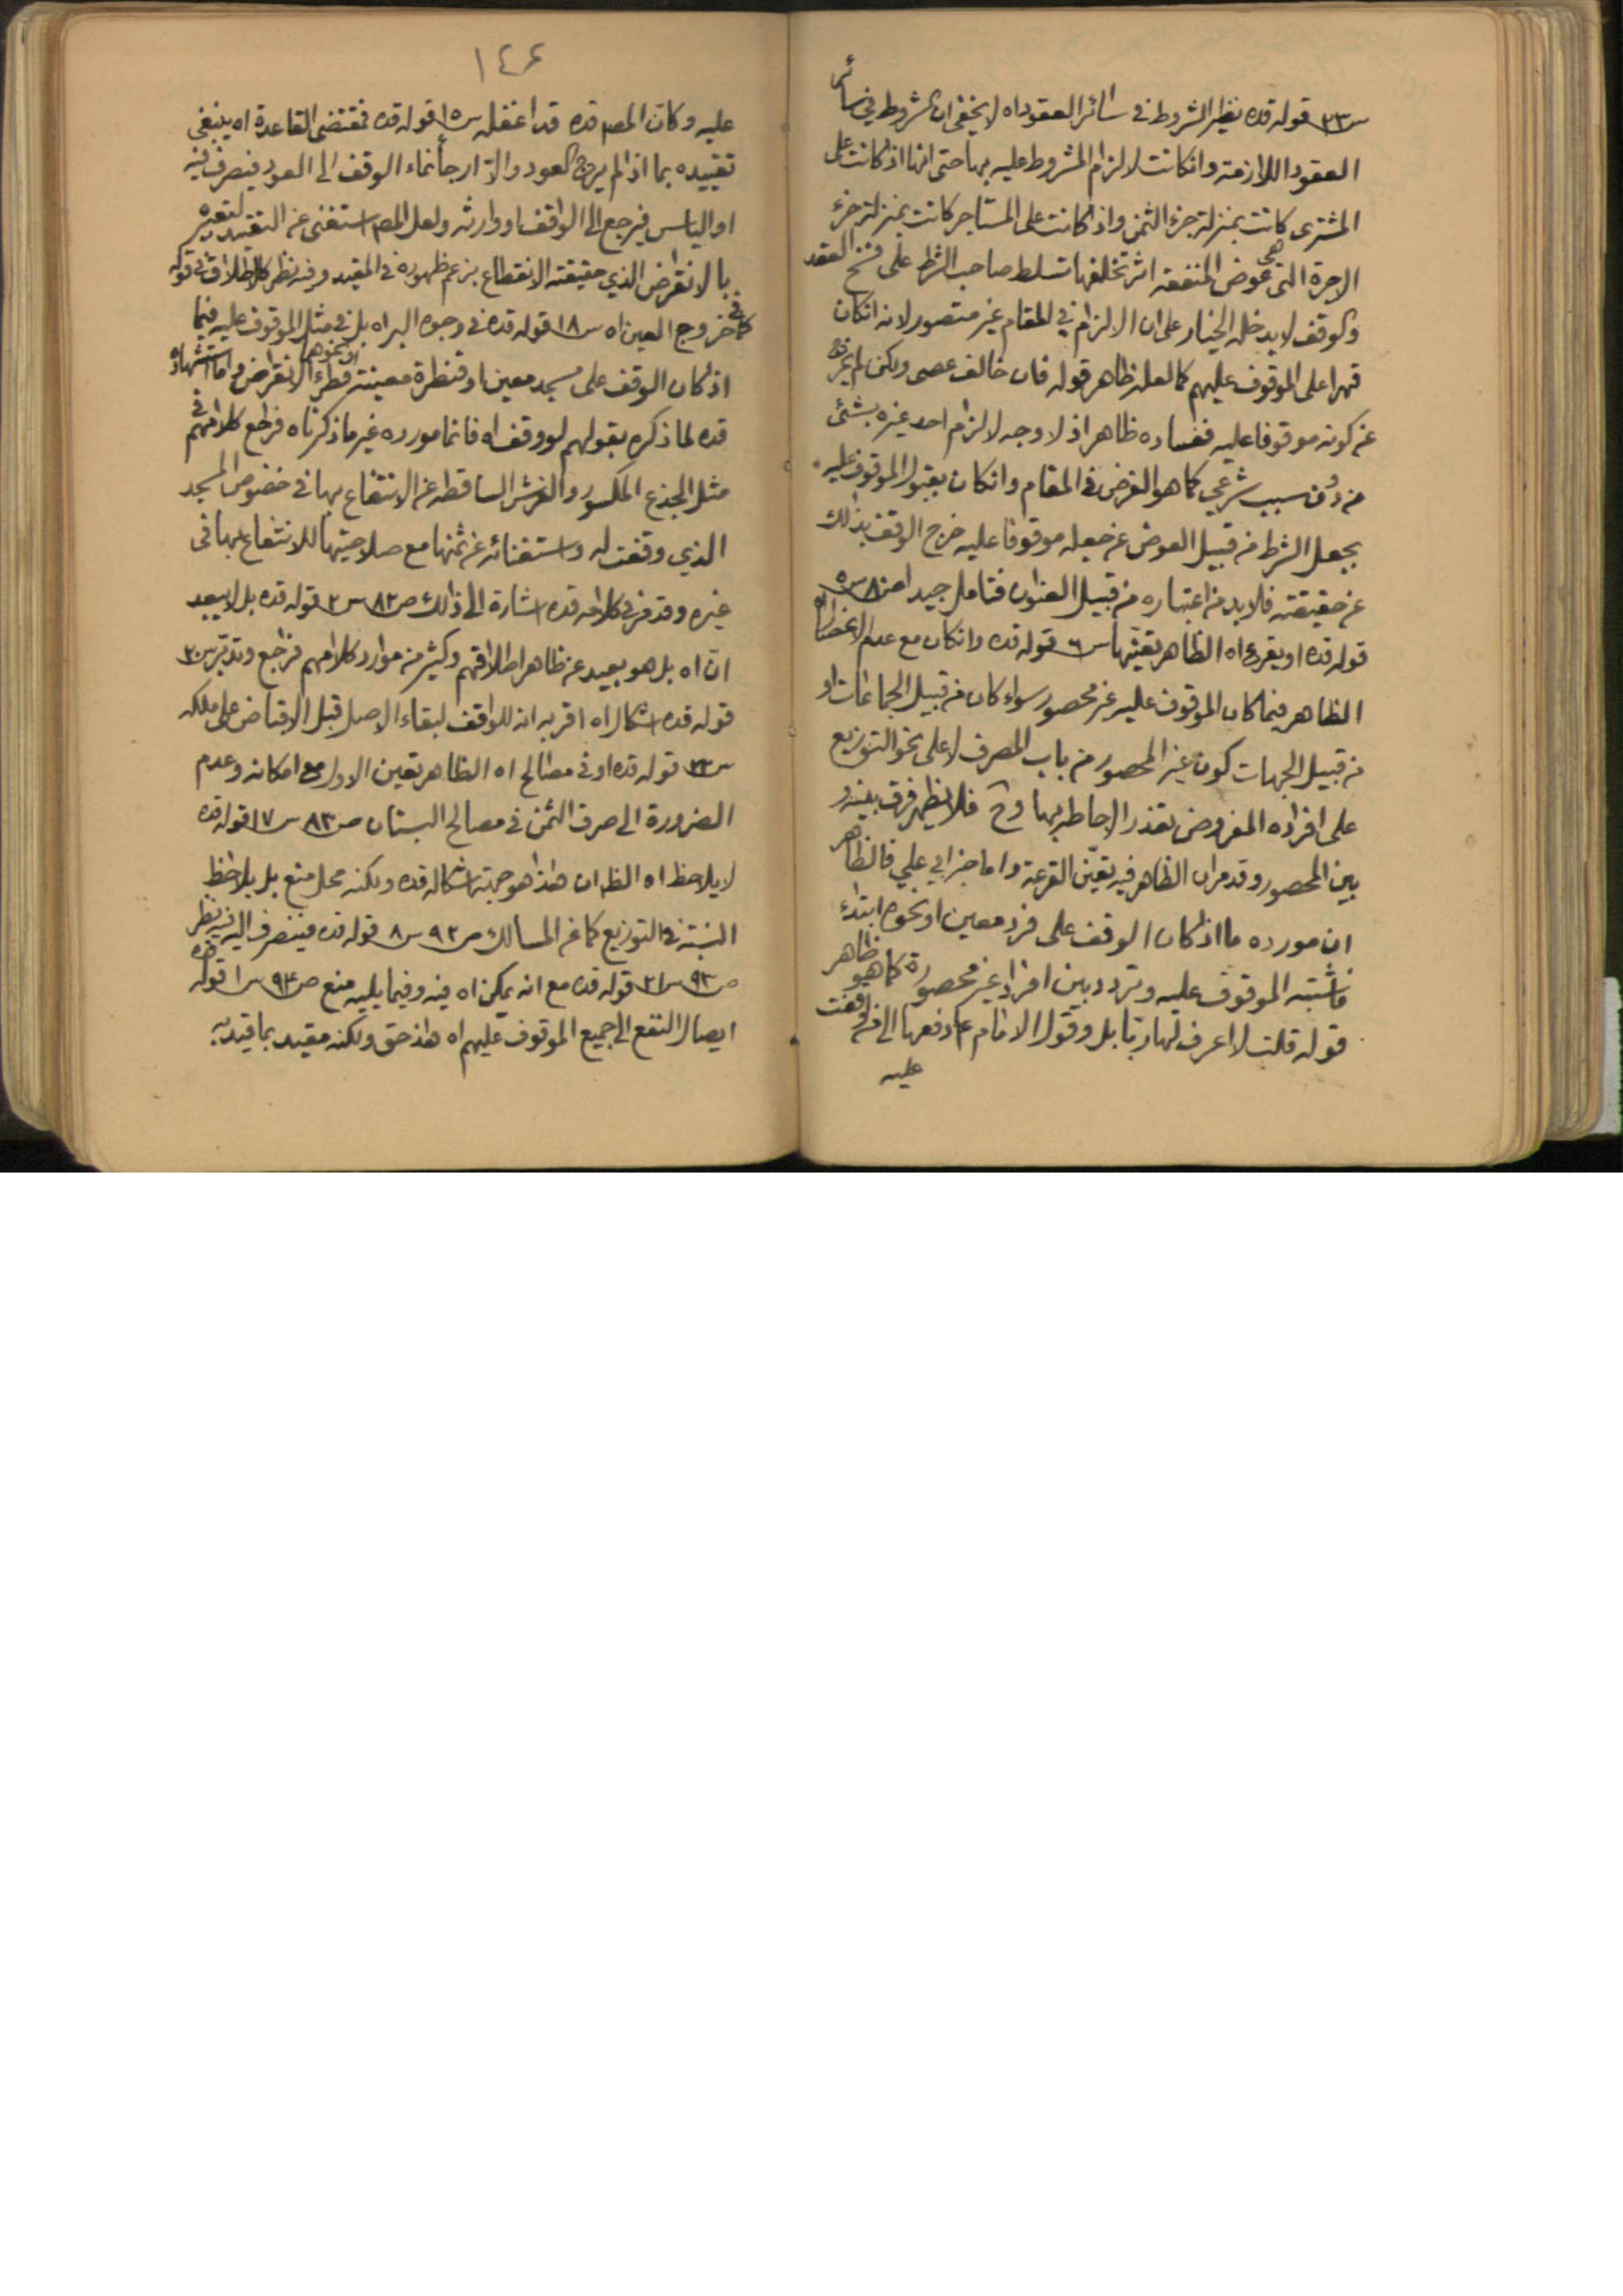 س٢٣ قوله قده نظير الشروط في سائر العقود اه لا يخفى ان الشروط في سائر
العقود اللازمة وانكانت لالزام المشروط عليه بها حتى انها اذا كانت على
المشترى كانت بمنزلة جزء الثمن واذا كانت على المستاجر كانت بمنزلة جزء
الاجرة التى هي عوض المنفعة اثر تخلفها تسلط صاحب الشرط على فسخ العقد
والوقف لا يدخله الخيار على ان الالزام في المقام غير متصور لانه انكان
قهرا على الموقوف عليهم كما لعله ظاهر قوله فان خالف عصى ولكن لم يخرج
عن كونه موقوفا عليه ففساده ظاهر اذ لا وجه لالزام احد غيره بشئ
من دون سبب شرعي كما هو الفرض في المقام وانكان بقبول الموقوف عليه
بجعل الشرط من قبيل العوض عن جعله موقوفا عليه خرج الوقف بذلك
عن حقيقته فلا بد من اعتباره من قبيل العنوان فتامل جيدا ص٨٠ س٥
قوله قده او يقرع اه الظاهر تعينها س٦ قوله قده وانكان مع عدم الانحصار اه
الظاهر فيما كان الموقوف عليه غير محصور سواء كان من قبيل الجماعات او
من قبيل الجهات كون غير المحصور من باب المصرف لا على نحو التوزيع
على افراده المفروض تعذر الاحاطه بها وح فلا يظهر فرق بينه و
بين المحصور وقد مر ان الظاهر فيه تعيّن القرعة واما خبر ابي علي فالظاهر
ان مورده ما اذا كان الوقف على فرد معين او نحوه ابتداء
فاشتبه الموقوف عليه وتردد بين افراد غير محصورة كما هو ظاهر
قوله قلت لا اعرف لها ربّا بل وقول الامام ع ادفعها الى من اوقفت
عليه
١٤٤
عليه وكانّ المصم قده قد اغفله س١٥ قوله قده فمقتضى القاعدة اه ينبغي
تقييده بما اذا لم يرج العود والّا ارجأ نماء الوقف الى العود فيصرف فيه
او الياس فيرجع الى الواقف او وارثه ولعل المصم استغنى عن التقييد بتعبيره
بالانقراض الذي حقيقته الانقطاع بزعم ظهوره في المقيد وفيه نظر كالاطلاق في قوله
كما في خروج العين اه س١٨ قوله قده في وجوه البر اه بل في مثل الموقوف عليه فيما
اذا كان الوقف على مسجد معين او قنطرة معينة او نحوهما فطرء الانقراض واما استشهاده
قده لما ذكره بقولهم لو وقف اه فانما مورده غير ما ذكرناه فراجع كلامهم في
مثل الجذع المكسور والفرش الساقطه عن الانتفاع بها في خصوص المسجد
الذي وقفت له واستغنائه عن ثمنها مع صلاحيتها للانتفاع بها في
غيره وقد مر في كلامه قده اشارة الى ذلك ص٨٢ س٢ قوله قده بل لا يبعد
ان اه بل هو بعيد عن ظاهر اطلاقهم وكثير من موارد كلامهم فراجع وتدبر س٢٠
قوله قده اشكال اه اقربه انه للواقف لبقاء الاصل قبل الاقباض على ملكه
س٢٢ قوله قده او في مصالح اه الظاهر تعين الاول مع امكانه وعدم
الضرورة الى صرف الثمن في مصالح البستان ص٨٣ س١٧ قوله قده
لا يلاحظ اه الظ ان هذا هو جهة اشكاله قده ولكنه محل منع بل يلاحظ
النسبة في التوزيع كما عن المسالك ص٩٢ س٨ قوله قده فينصرف اليه فيه نظر
ص٩٣ س٢١ قوله قده مع انه يمكن اه فيه وفيما يليه منع ص٩٤ س١ قوله قده
ايصال النفع الى جميع الموقوف عليهم اه هذا حق ولكنه مقيد بما قيد به